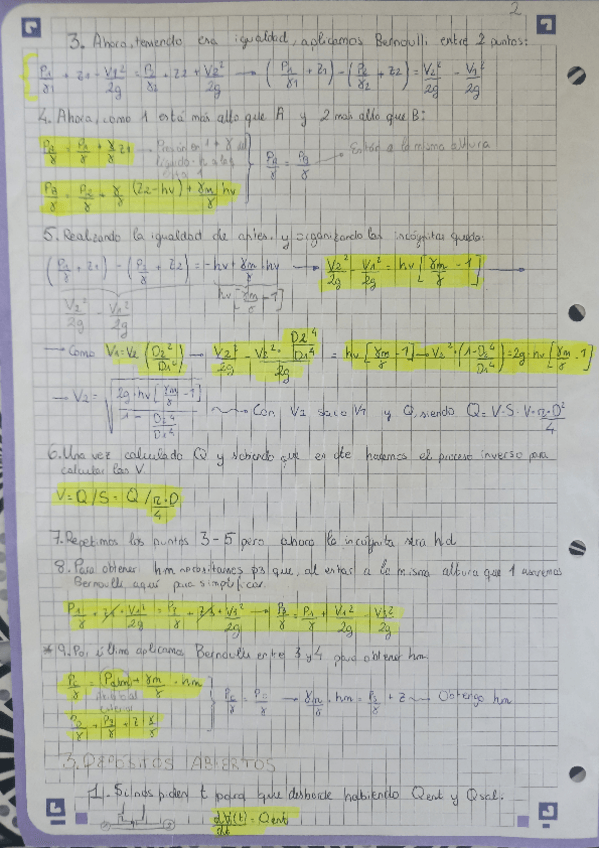 2
3. Ahora, teniendo esa igualdad, aplicamos Bernoulli entre 2 puntos:
P1/γ1 + z1 + V1²/2g = P2/γ2 + z2 + V2²/2g → (P1/γ1 + z1) - (P2/γ2 + z2) = V2²/2g - V1²/2g
4. Ahora, como 1 está más alto que A y 2 más alto que B:
PA/γ = P1/γ + γ/γ z1 → Presión en 1 + γ del
líquido · h a la q
está 1
PB/γ = P2/γ + γ/γ (z2 - hv) + γm/γ hv
PA/γ = PB/γ → Están a la misma altura
5. Realizando la igualdad de antes y organizando las incógnitas queda:
(P1/γ + z1) - (P2/γ + z2) = -hv + γm/γ hv → V2²/2g - V1²/2g = hv [γm/γ - 1] →
V2²/2g - V1²/2g
hv [γm/γ - 1]
→ Como V1 = V2 (D2²/D1²) → V2²/2g - V2² · D2⁴/D1⁴/2g = hv [γm/γ - 1] → V2² · (1 - D2⁴/D1⁴) = 2g · hv [γm/γ - 1]
→ V2 = √(2g · hv [γm/γ - 1] / 1 - D2⁴/D1⁴) → Con V2 saco V1 y Q, siendo Q = V·S = V·π·D²/4
6. Una vez calculado Q y sabiendo que es cte hacemos el proceso inverso para
calcular las V.
V = Q/S = Q/π·D/4
7. Repetimos los puntos 3-5 pero ahora la incógnita será hd
8. Para obtener hm necesitamos p3 que, al estar a la misma altura que 1 usaremos
Bernoulli aquí para simplificar.
P1/γ + z1 + V1²/2g = P3/γ + z3 + V3²/2g → P3/γ = P1/γ + V1²/2g - V3²/2g
* 9. Por último aplicamos Bernoulli entre 3 y 4 para obtener hm
= Patm + γm/γ · hm
exterior
→ γm/γ · hm = P3/γ + z → Obtengo hm
3. DEPÓSITOS ABIERTOS
1. Si nos piden t para que desborde habiendo Qent y Qsal.
d∀(t)/dt = Qent